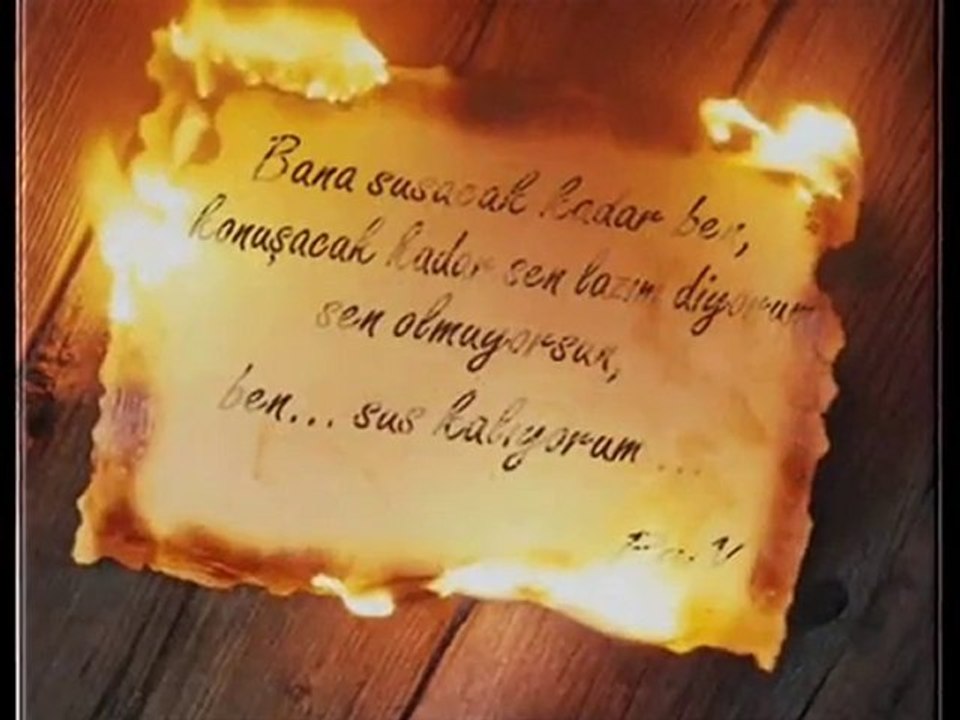 Bana susacak kadar ben,
konuşacak kadar sen lazım diyorum
sen olmuyorsun,
ben... sus kalıyorum ...